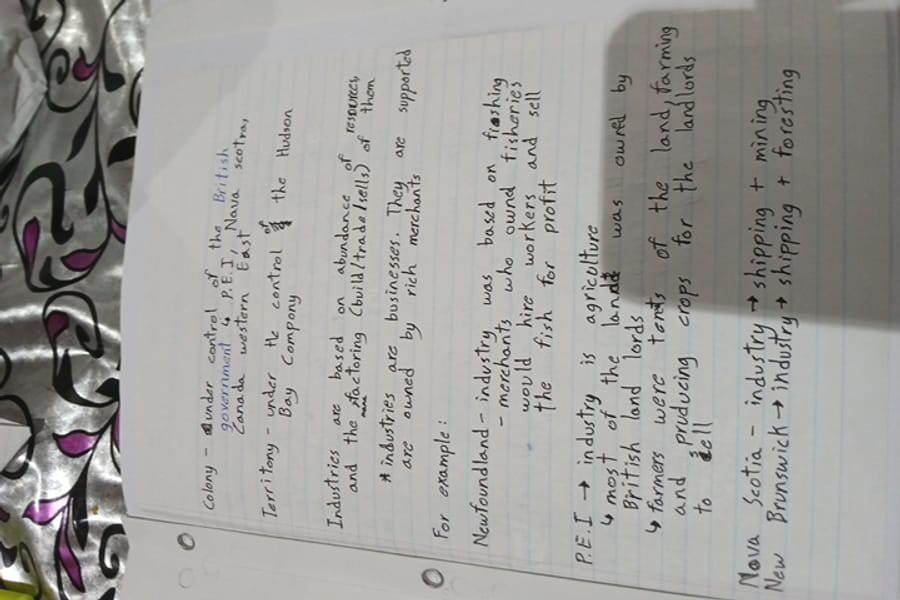 Colony - under control of the British
government ↳ P.E.I, Nava scotia,
Canada western East
Territory - under the control of the Hudson
Bay Compony
Industries are based on abundance of resources,
and the manufactoring (build/trade/sells) of them
* industries are businesses. They are supported
are owned by rich merchants
For example:
Newfoundland - industry was based on fishing
- merchants who owned fisheries
would hire workers and sell
the fish for profit
P.E.I → industry is agriculture
↳ most of the land was owned by
British land lords
↳ farmers were tenets of the land, farming
and prucing crops for the landlords
to sell
Nova Scotia - industry → shipping + mining
New Brunswick → industry → shipping + foresting